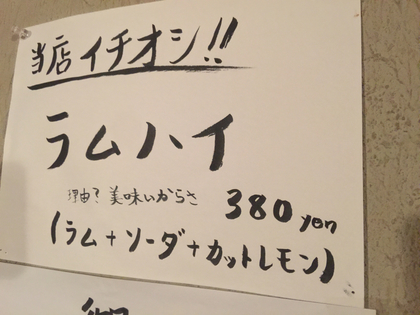 当店イチオシ!!
ラムハイ
理由? 美味いからさ 380yen
(ラム+ソーダ+カットレモン)